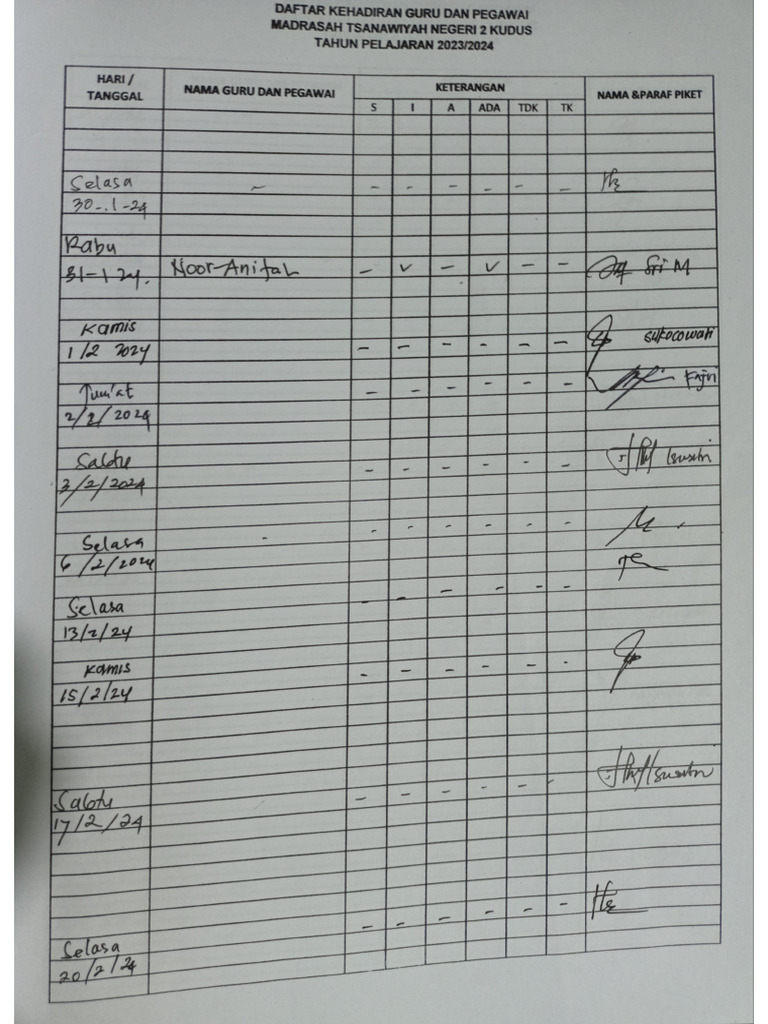 DAFTAR KEHADIRAN GURU DAN PEGAWAI
MADRASAH TSANAWIYAH NEGERI 2 KUDUS
TAHUN PELAJARAN 2023/2024
HARI / TANGGAL NAMA GURU DAN PEGAWAI KETERANGAN NAMA &PARAF PIKET
S I A ADA TDK TK
Selasa ~ - - - - - -
30-1-24
Rabu
31-1 24. Noor Anifah - v - v - - Sri M
Kamis
1/2 2024 - - - - - - Sukocowati
Jum'at - - - - - - Fajri
2/2/2024
Sabtu - - - - - -
3/2/2024
Selasa - - - - - - -
6/2/2024
Selasa - - - - - -
13/2/24
Kamis - - - - - -
15/2/24
Sabtu - - - - - -
17/2/24
Selasa - - - - - -
20/2/24